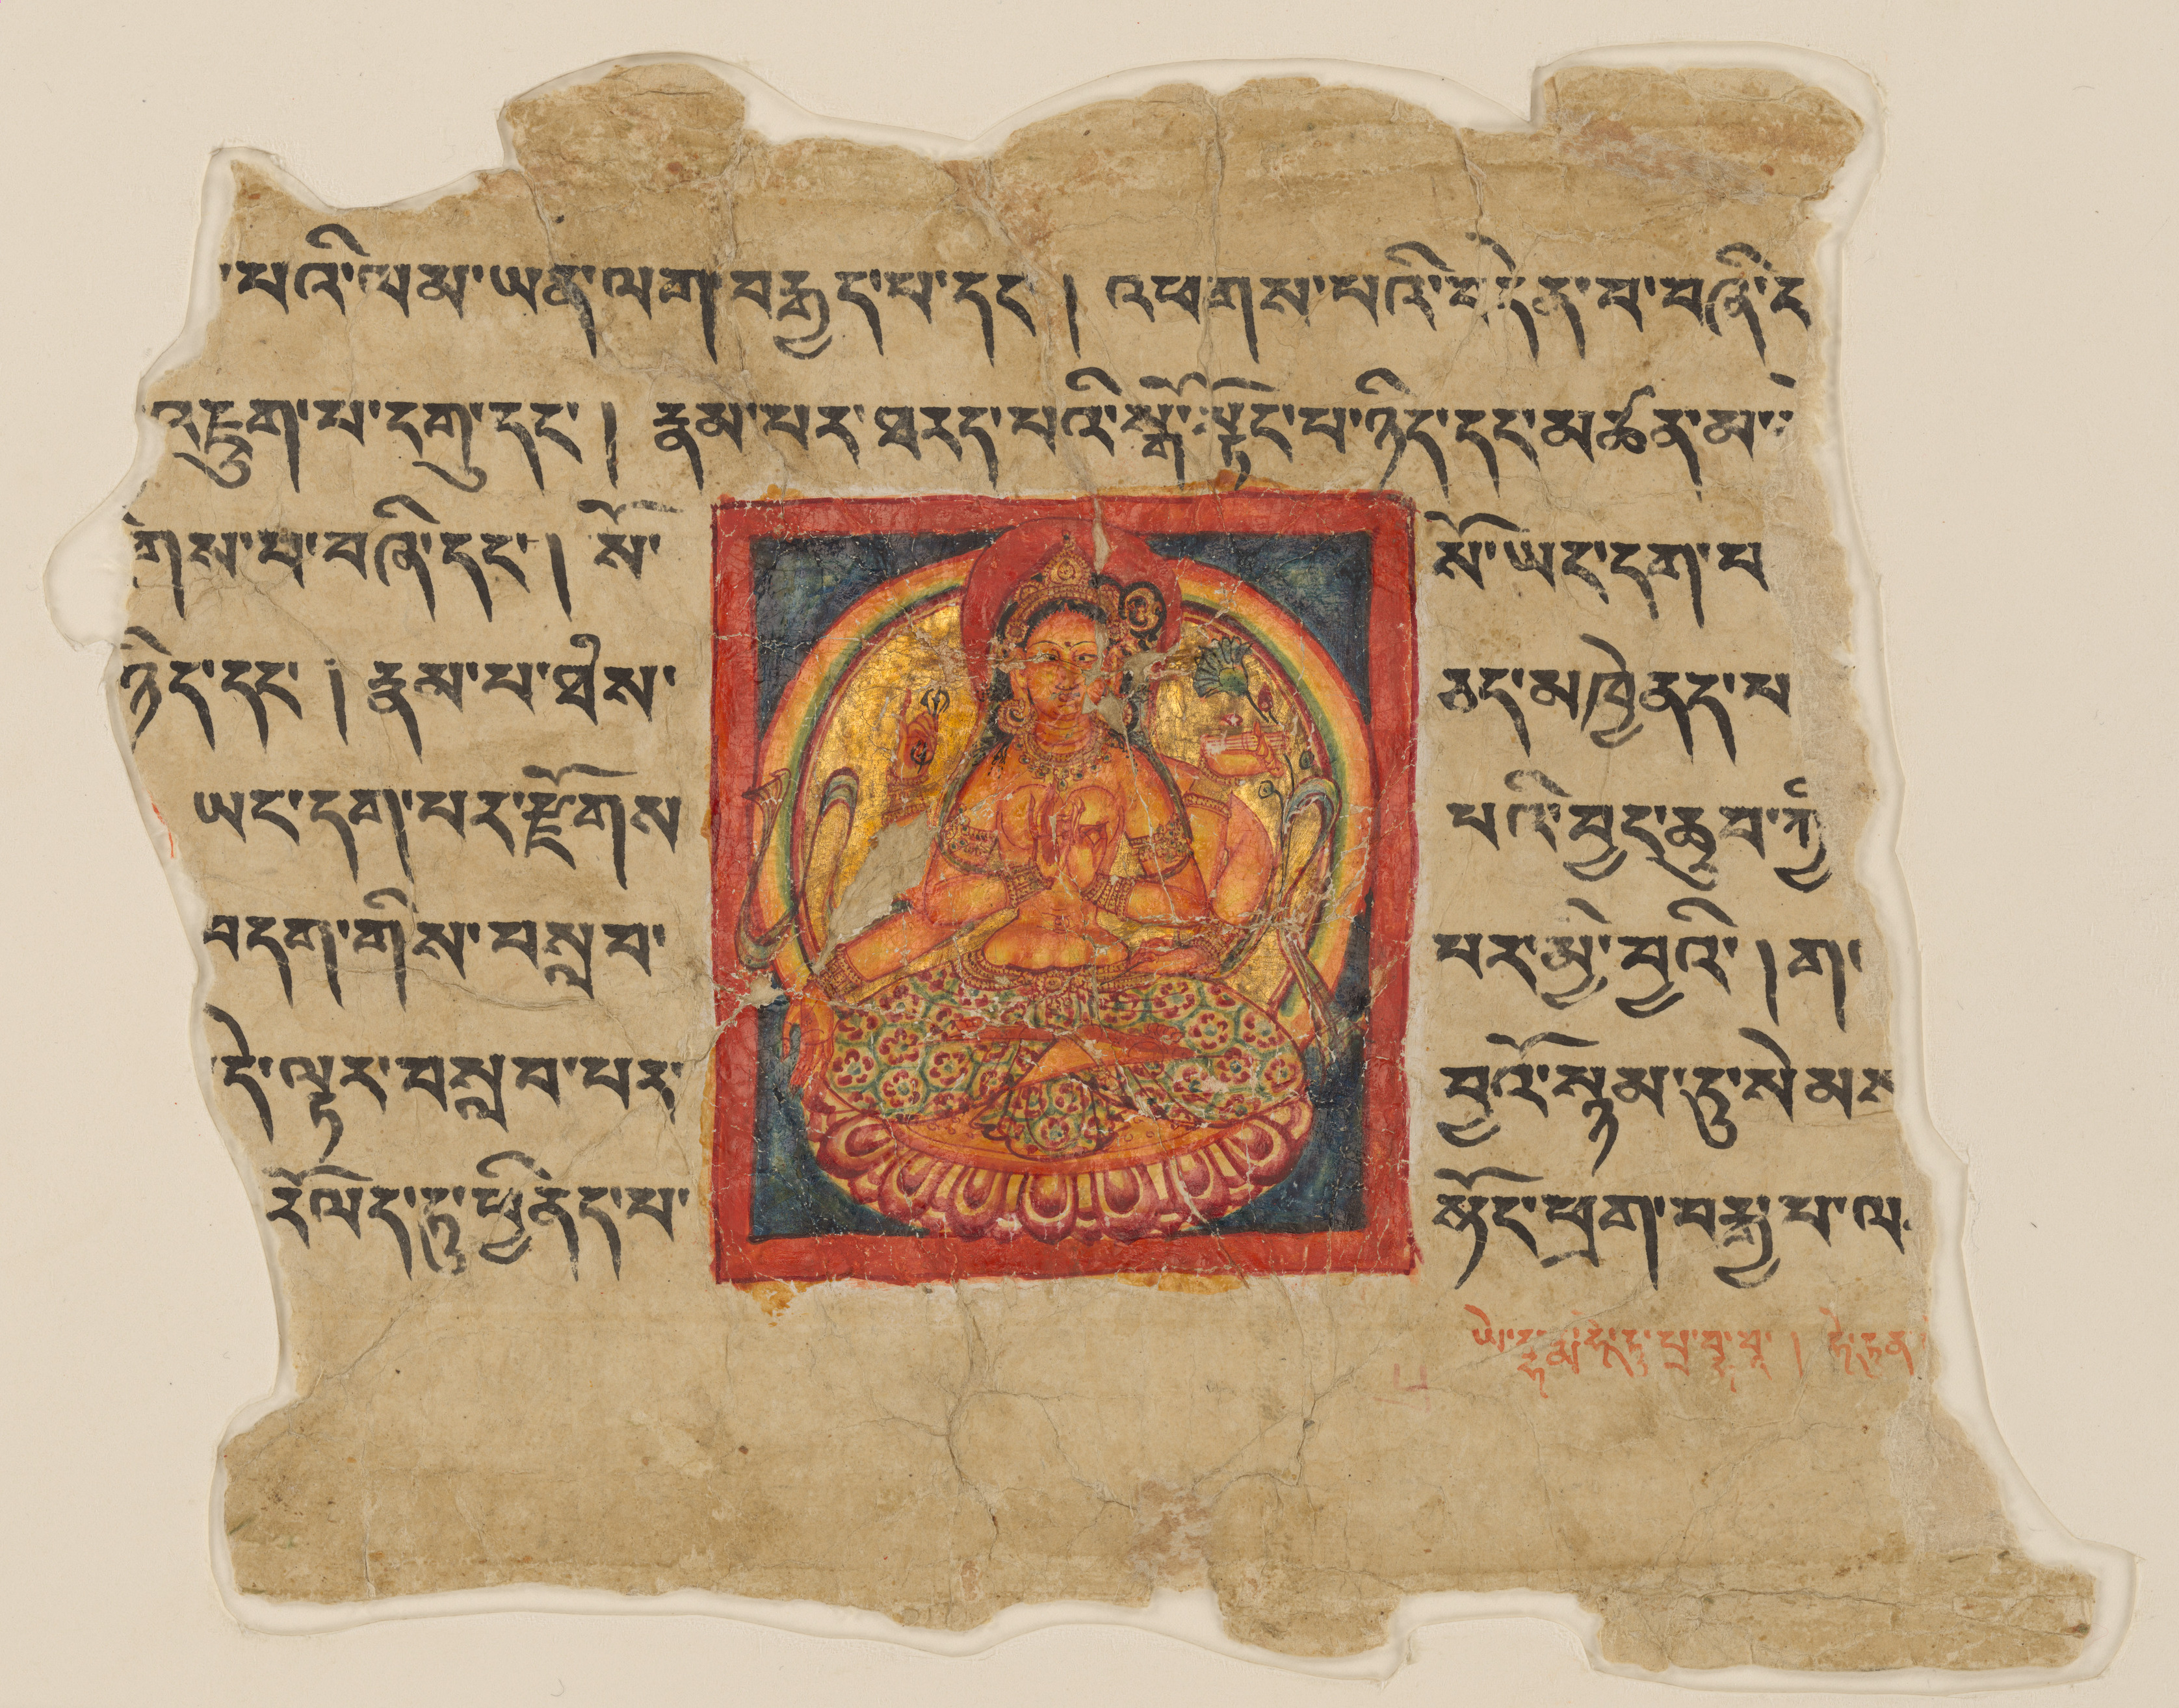 པའི་ལམ་ཡན་ལག་བརྒྱད་པ་དང་། འཕགས་པའི་བདེན་པ་བཞི་ད
འཇུག་པ་དགུ་དང་། རྣམ་པར་ཐརད་པའི་སྒོ་སྟོང་པ་ཉིད་དང་མཚན་མ་
གས་པ་བཞི་དང་། སོ་ སོ་ཡང་དག་པ
ཉིད་དང་། རྣམ་པ་ཐམས་ ཅད་མཁྱེནད་པ
ཡང་དག་པར་རྫོགས པའི་བྱང་ཆུབ་ཀྱ
བདག་གིས་བསླབ་ པར་མྱི་བྱའི་། ག་
དེ་ལྟར་བསླབ་པར་ བྱའོ་སྙམ་དུ་སེམས
རོལད་དུ་ཕྱིནད་པ་ སྟོང་ཕྲག་བརྒྱ་པ་ལ
ཡེ་དྷརྨ་ཧེ་ཏུ་པྲ་བྷ་བ། ཧེ་ཏུན